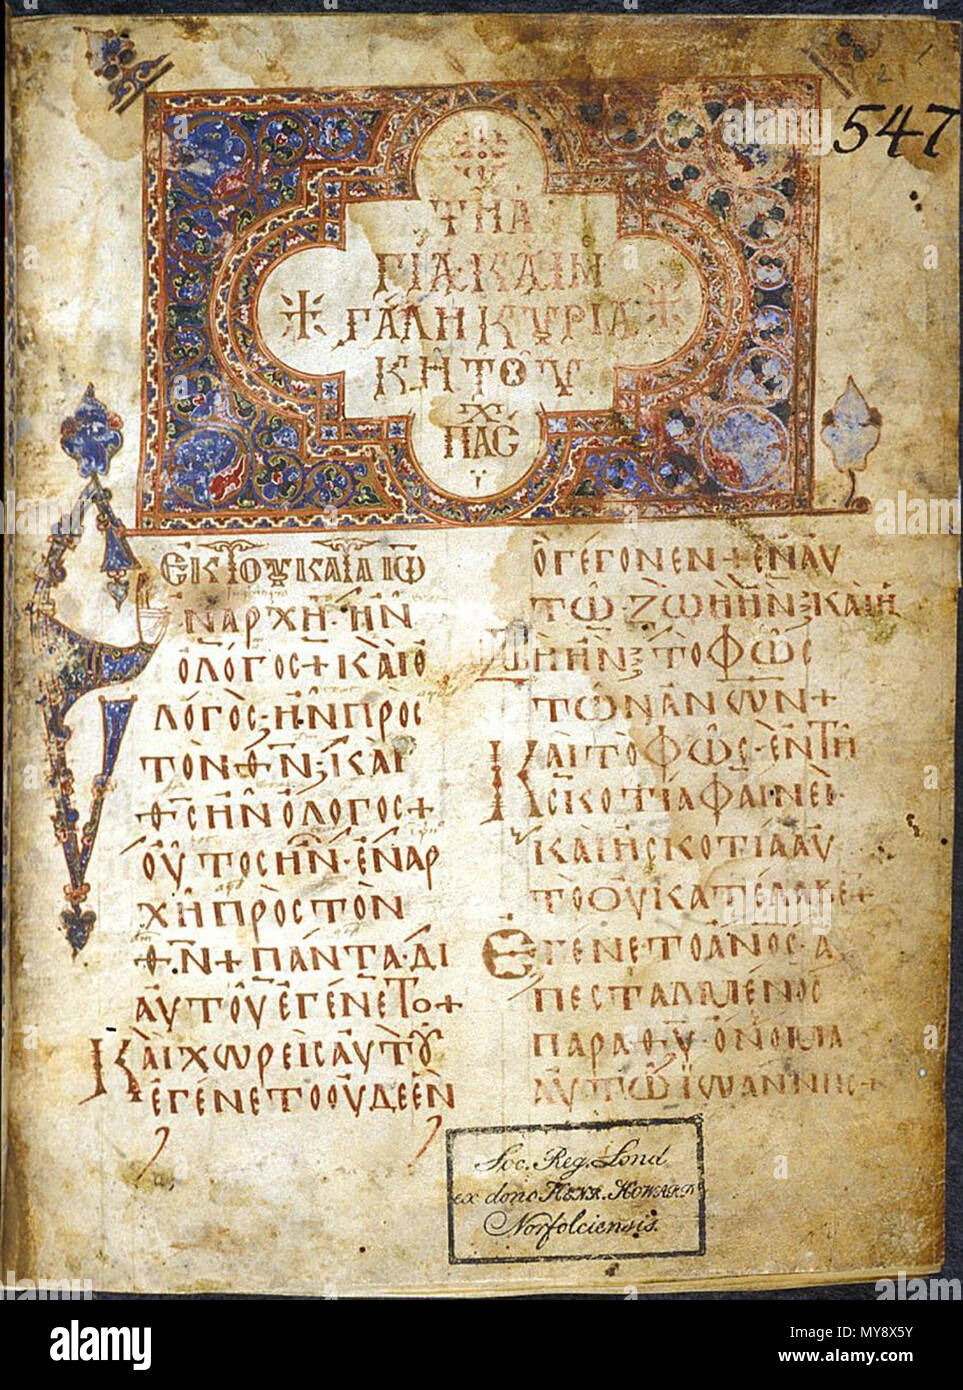 547
ΤΗ Α
ΓΙΑ·ΚΑΙ Μ
ΓΑΛΗ ΚΥΡΙΑ
ΚΗ ΤΟΥ
ΠΑC
Χ
ΕΚ ΤΟΥ ΚΑΤΑ ΙΩ
ΕΝ ΑΡΧΗ· ΗΝ
Ο ΛΟΓΟC + ΚΑΙ Ο
ΛΟΓΟC· ΗΝ ΠΡΟC
ΤΟΝ ΘΝ· ΚΑΙ
ΘC ΗΝ Ο ΛΟΓΟC +
ΟΥΤΟC ΗΝ· ΕΝ ΑΡ
ΧΗ ΠΡΟC ΤΟΝ
ΘΝ + ΠΑΝΤΑ· ΔΙ
ΑΥΤΟΥ ΕΓΕΝΕΤΟ +
ΚΑΙ ΧΩΡΕΙC ΑΥΤΟΥ
ΕΓΕΝΕΤΟ ΟΥΔΕ ΕΝ
Ο ΓΕΓΟΝΕΝ + ΕΝ ΑΥ
ΤΩ· ΖΩΗ ΗΝ· ΚΑΙ Η
ΖΩΗ ΗΝ· ΤΟ ΦΩC
ΤΩΝ ΑΝΩΝ +
ΚΑΙ ΤΟ ΦΩC· ΕΝ ΤΗ
CΚΟΤΙΑ ΦΑΙΝΕΙ·
ΚΑΙ Η CΚΟΤΙΑ ΑΥ
ΤΟ ΟΥ ΚΑΤΕΛΑΒΕ +
ΕΓΕΝΕΤΟ ΑΝΟC· Α
ΠΕCΤΑΛΜΕΝΟC
ΠΑΡΑ ΘΥ· ΟΝΟΜΑ
ΑΥΤΩ ΪΩΑΝΝΗC +
Soc. Reg. Lond
ex dono HENR. HOWARD
Norfolciensis.
alamy
Image ID: MY8X5Y
www.alamy.com